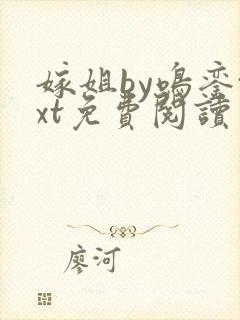 嫁姐by鳴鸞t
xt免費閱讀
廖河